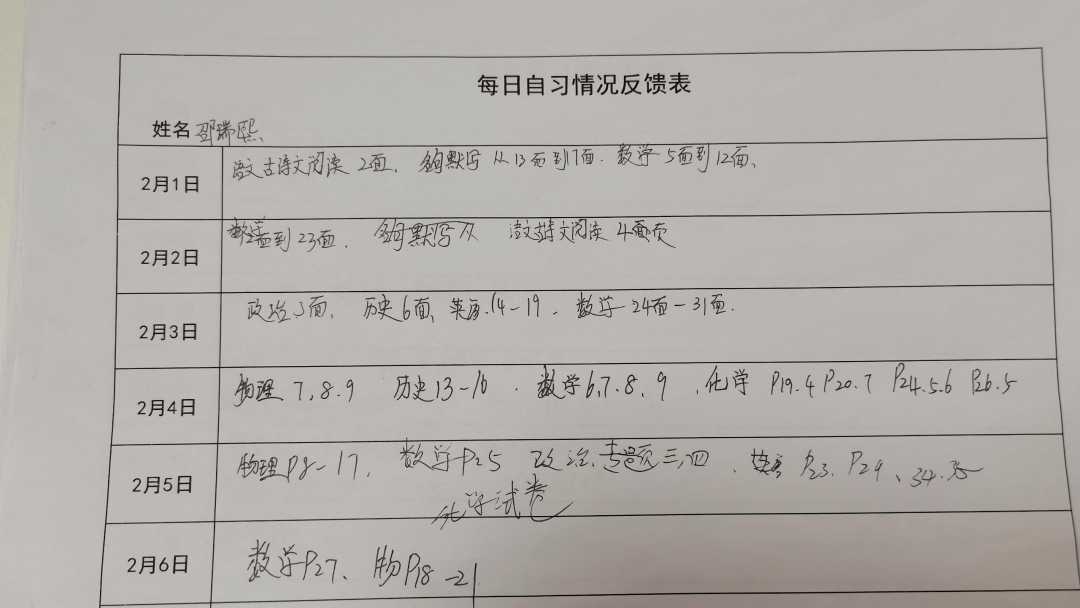 每日自习情况反馈表
姓名 邵瑞熙
2月1日 语文古诗文阅读 2面, 名句默写 从13面到17面. 数学 5面到12面、
2月2日 数学 面到23面. 名句默写 语文古诗文阅读 4页
2月3日 政治 5面, 历史6面, 英语.14-19. 数学24面-31面.
2月4日 物理 7,8.9 历史13-16. 数学6,7.8.9 ,化学 P19.4 P20.7 P24.5.6 P26.5
2月5日 物理P8-17, 数学P25 政治.专题三,四、 P23. P29、34.35
化学试卷
2月6日 数学P27、物P18-21